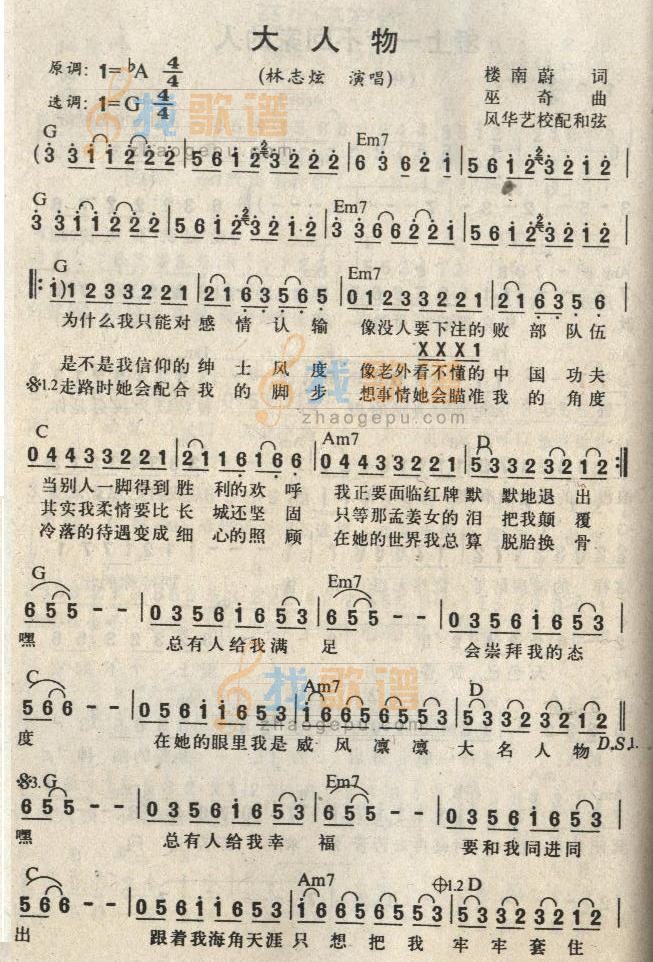 大人物
原调: 1=♭A 4/4
(林志炫 演唱)
楼南蔚 词
选调: 1=G 4/4
巫奇 曲
风华艺校配和弦
找歌谱
zhaogepu.com
G Em7
(3 3 1 1 2 2 2 | 5 6 1 2 3 2 2 2 | 6 3 6 2 1 | 5 6 1 2 3 2 1 2 |
G Em7
3 3 1 1 2 2 2 | 5 6 1 2 3 2 1 2 | 3 3 6 6 2 2 1 | 5 6 1 2 3 2 1 2 |
G Em7
‖: 1) 1 2 3 3 2 2 1 | 2 1 6 3 5 6 5 | 0 1 2 3 3 2 2 1 | 2 1 6 3 5 6 |
为什么我只能对感情认输 像没人要下注的败部队伍
X X X 1
是不是我信仰的绅士风度 像老外看不懂的中国功夫
𝄋1.2走路时她会配合我的脚步 想事情她会瞄准我的角度
找歌谱
zhaogepu.com
C Am7 D
0 4 4 3 3 2 2 1 | 2 1 1 6 1 6 6 | 0 4 4 3 3 2 2 1 | 5 3 3 2 3 2 1 2 :‖
当别人一脚得到胜利的欢呼 我正要面临红牌默默地退出
其实我柔情要比长城还坚固 只等那孟姜女的泪把我颠覆
冷落的待遇变成细心的照顾 在她的世界我总算脱胎换骨
G Em7
6 5 5 - - | 0 3 5 6 1 6 5 3 | 6 5 5 - - | 0 3 5 6 1 6 5 3 |
嘿 总有人给我满足 会崇拜我的态
找歌谱
zhaogepu.com
C Am7 D
5 6 6 - - | 0 5 6 1 1 6 5 3 | 1 6 6 5 6 5 5 3 | 5 3 3 2 3 2 1 2 ‖
度 在她的眼里我是威风凛凛大名人物 D.S.1.
𝄋3. G Em7
6 5 5 - - | 0 3 5 6 1 6 5 3 | 6 5 5 - - | 0 3 5 6 1 6 5 3 |
嘿 总有人给我幸福 要和我同进同
C Am7 𝄌1.2 D
5 6 6 - - | 0 5 6 1 1 6 5 3 | 1 6 6 5 6 5 5 3 | 5 3 3 2 3 2 1 2 |
出 跟着我海角天涯只想把我牢牢套住